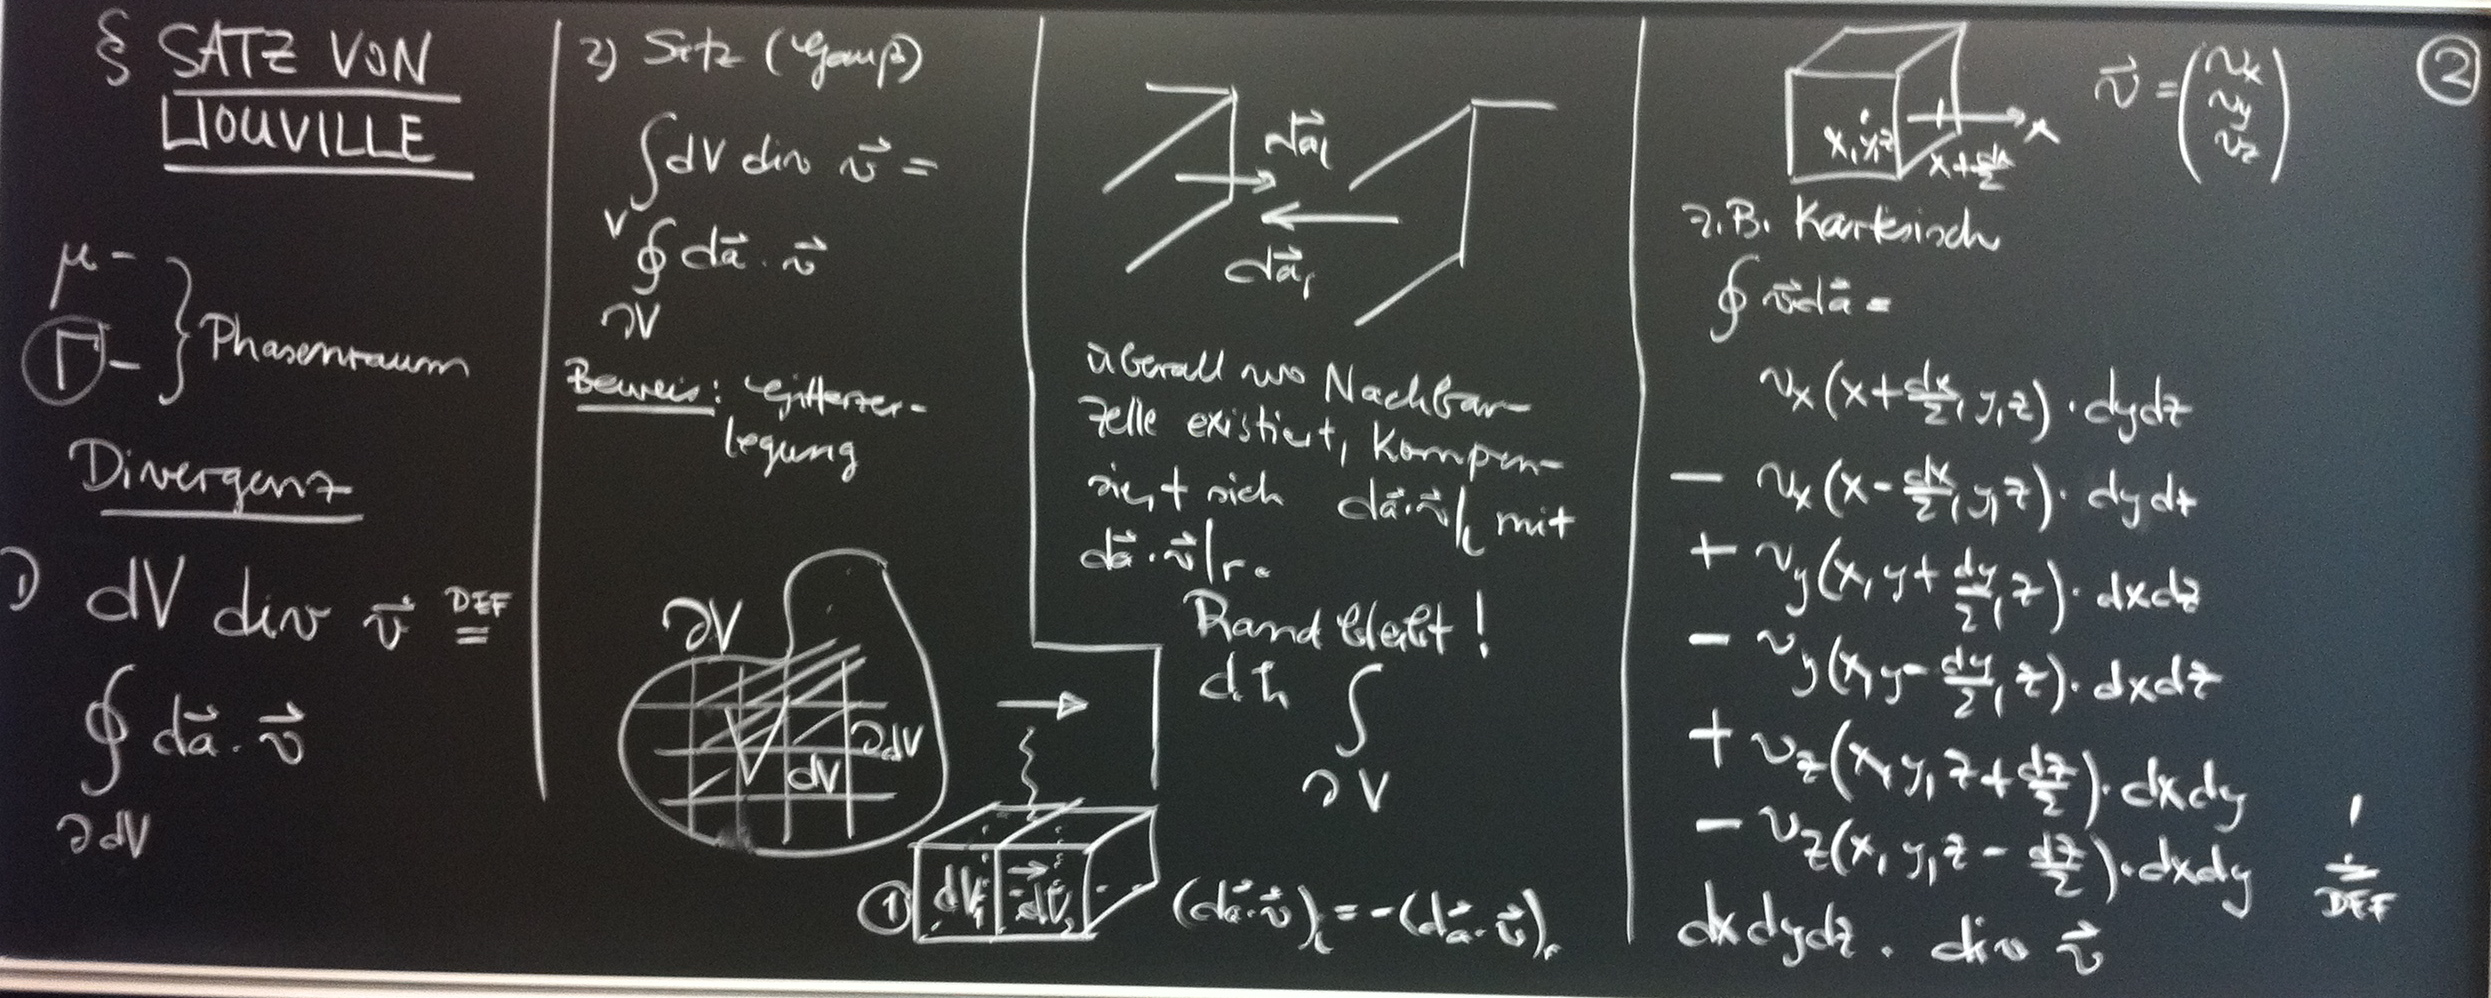 § SATZ VON
LIOUVILLE
μ-
Γ-
} Phasenraum
Divergenz
1) dV div v⃗ =DEF
∮ da⃗ · v⃗
∂dV
2) Satz (Gauß)
∫ dV div v⃗ =
V
∮ da⃗ · v⃗
∂V
Beweis: Gitterzer-
legung
∂V
V
dV
∂dV
① dV₁ dV₂
da⃗l
da⃗r
überall wo Nachbar-
zelle existiert, kompen-
siert sich da⃗·v⃗|l mit
da⃗·v⃗|r.
Rand bleibt!
dh ∫
∂V
(da⃗·v⃗)l = -(da⃗·v⃗)r
②
x,y,z
x+dx/2
x
v⃗ = (vx vy vz)
z.B. Kartesisch
∮ v⃗da⃗ =
vx(x+dx/2, y, z)·dydz
- vx(x-dx/2, y, z)·dydz
+ vy(x, y+dy/2, z)·dxdz
- vy(x, y-dy/2, z)·dxdz
+ vz(x, y, z+dz/2)·dxdy
- vz(x, y, z-dz/2)·dxdy =! DEF
dxdydz · div v⃗